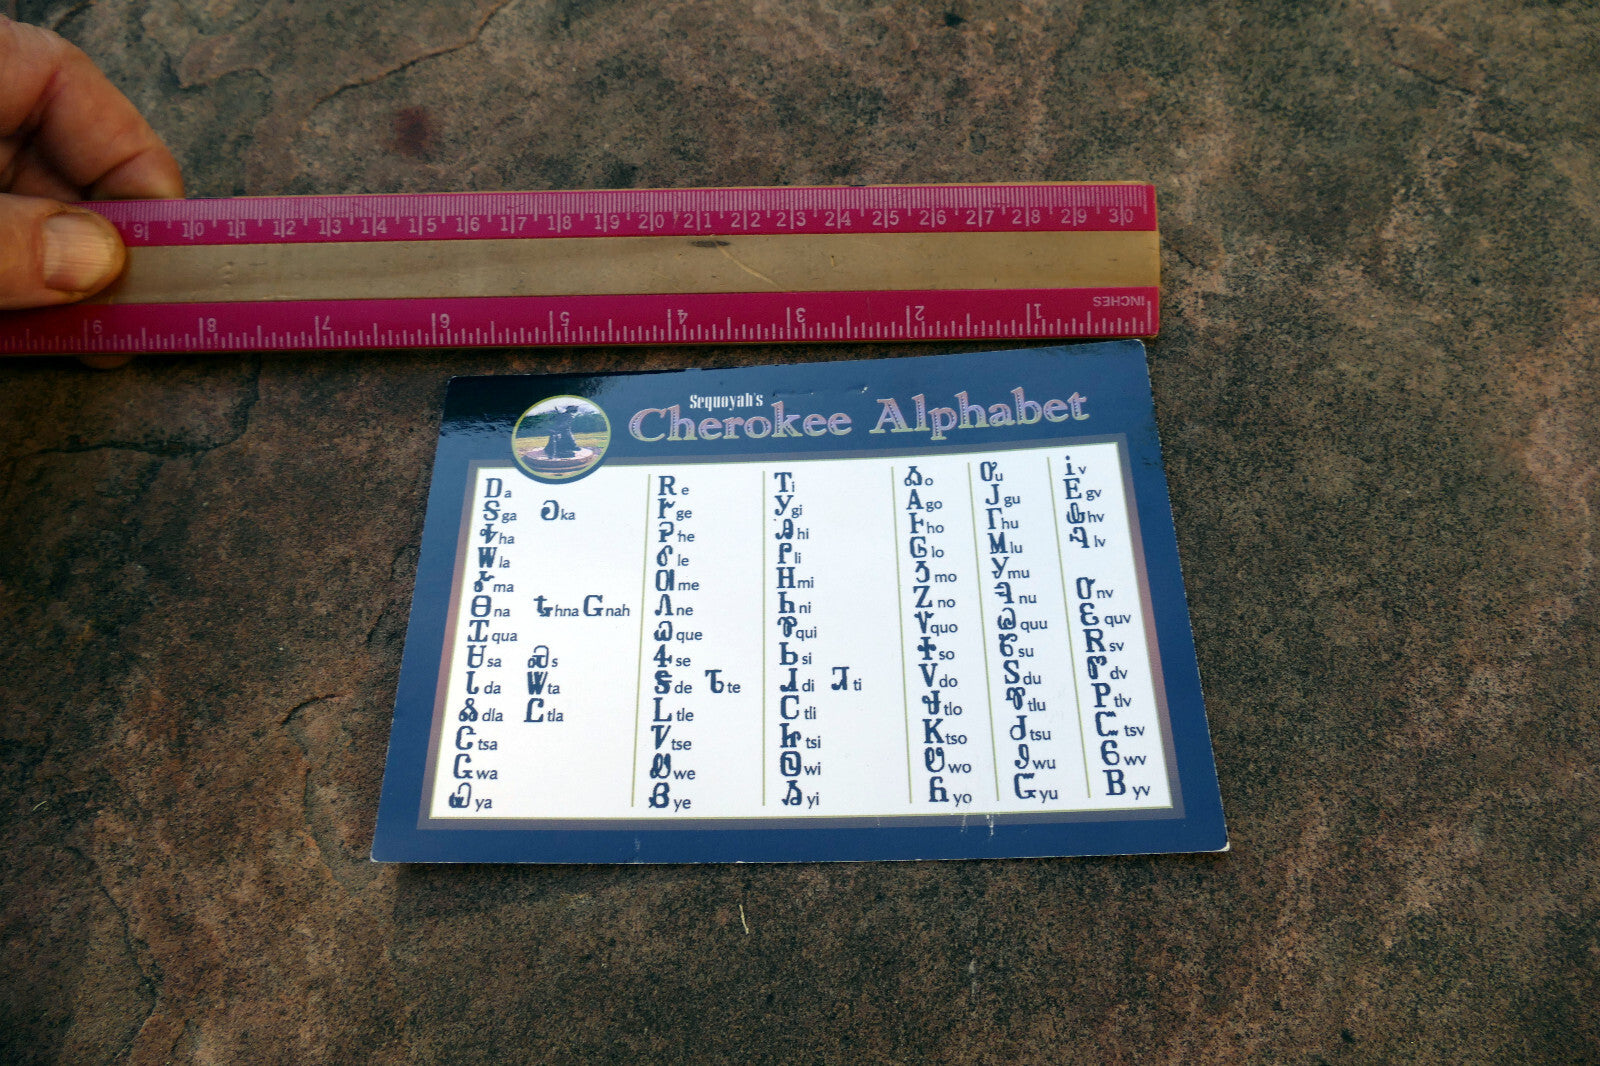 9 10 11 12 13 14 15 16 17 18 19 20 21 22 23 24 25 26 27 28 29 30
9 8 7 6 5 4 3 2 1 INCHES
Sequoyah's
Cherokee Alphabet
Ꭰ a Ꭱ e Ꭲ i Ꭳ o Ꭴ u Ꭵ v
Ꭶ ga Ꭷ ka Ꭸ ge Ꭹ gi Ꭺ go Ꭻ gu Ꭼ gv
Ꭽ ha Ꭾ he Ꭿ hi Ꮀ ho Ꮁ hu Ꮂ hv
Ꮃ la Ꮄ le Ꮅ li Ꮆ lo Ꮇ lu Ꮈ lv
Ꮉ ma Ꮊ me Ꮋ mi Ꮌ mo Ꮍ mu
Ꮎ na Ꮏ hna Ꮐ nah Ꮑ ne Ꮒ ni Ꮓ no Ꮔ nu Ꮕ nv
Ꮖ qua Ꮗ que Ꮘ qui Ꮙ quo Ꮚ quu Ꮛ quv
Ꮜ sa Ꮝ s Ꮞ se Ꮟ si Ꮠ so Ꮡ su Ꮢ sv
Ꮣ da Ꮤ ta Ꮥ de Ꮦ te Ꮧ di Ꮨ ti Ꮩ do Ꮪ du Ꮫ dv
Ꮬ dla Ꮭ tla Ꮮ tle Ꮯ tli Ꮰ tlo Ꮱ tlu Ꮲ tlv
Ꮳ tsa Ꮴ tse Ꮵ tsi Ꮶ tso Ꮷ tsu Ꮸ tsv
Ꮹ wa Ꮺ we Ꮻ wi Ꮼ wo Ꮽ wu Ꮾ wv
Ꮿ ya Ᏸ ye Ᏹ yi Ᏺ yo Ᏻ yu Ᏼ yv